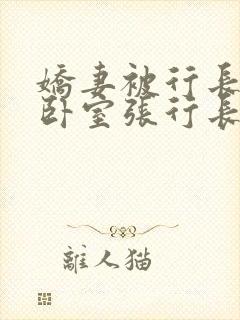 嬌妻被行長
卧室張行長
離人猫